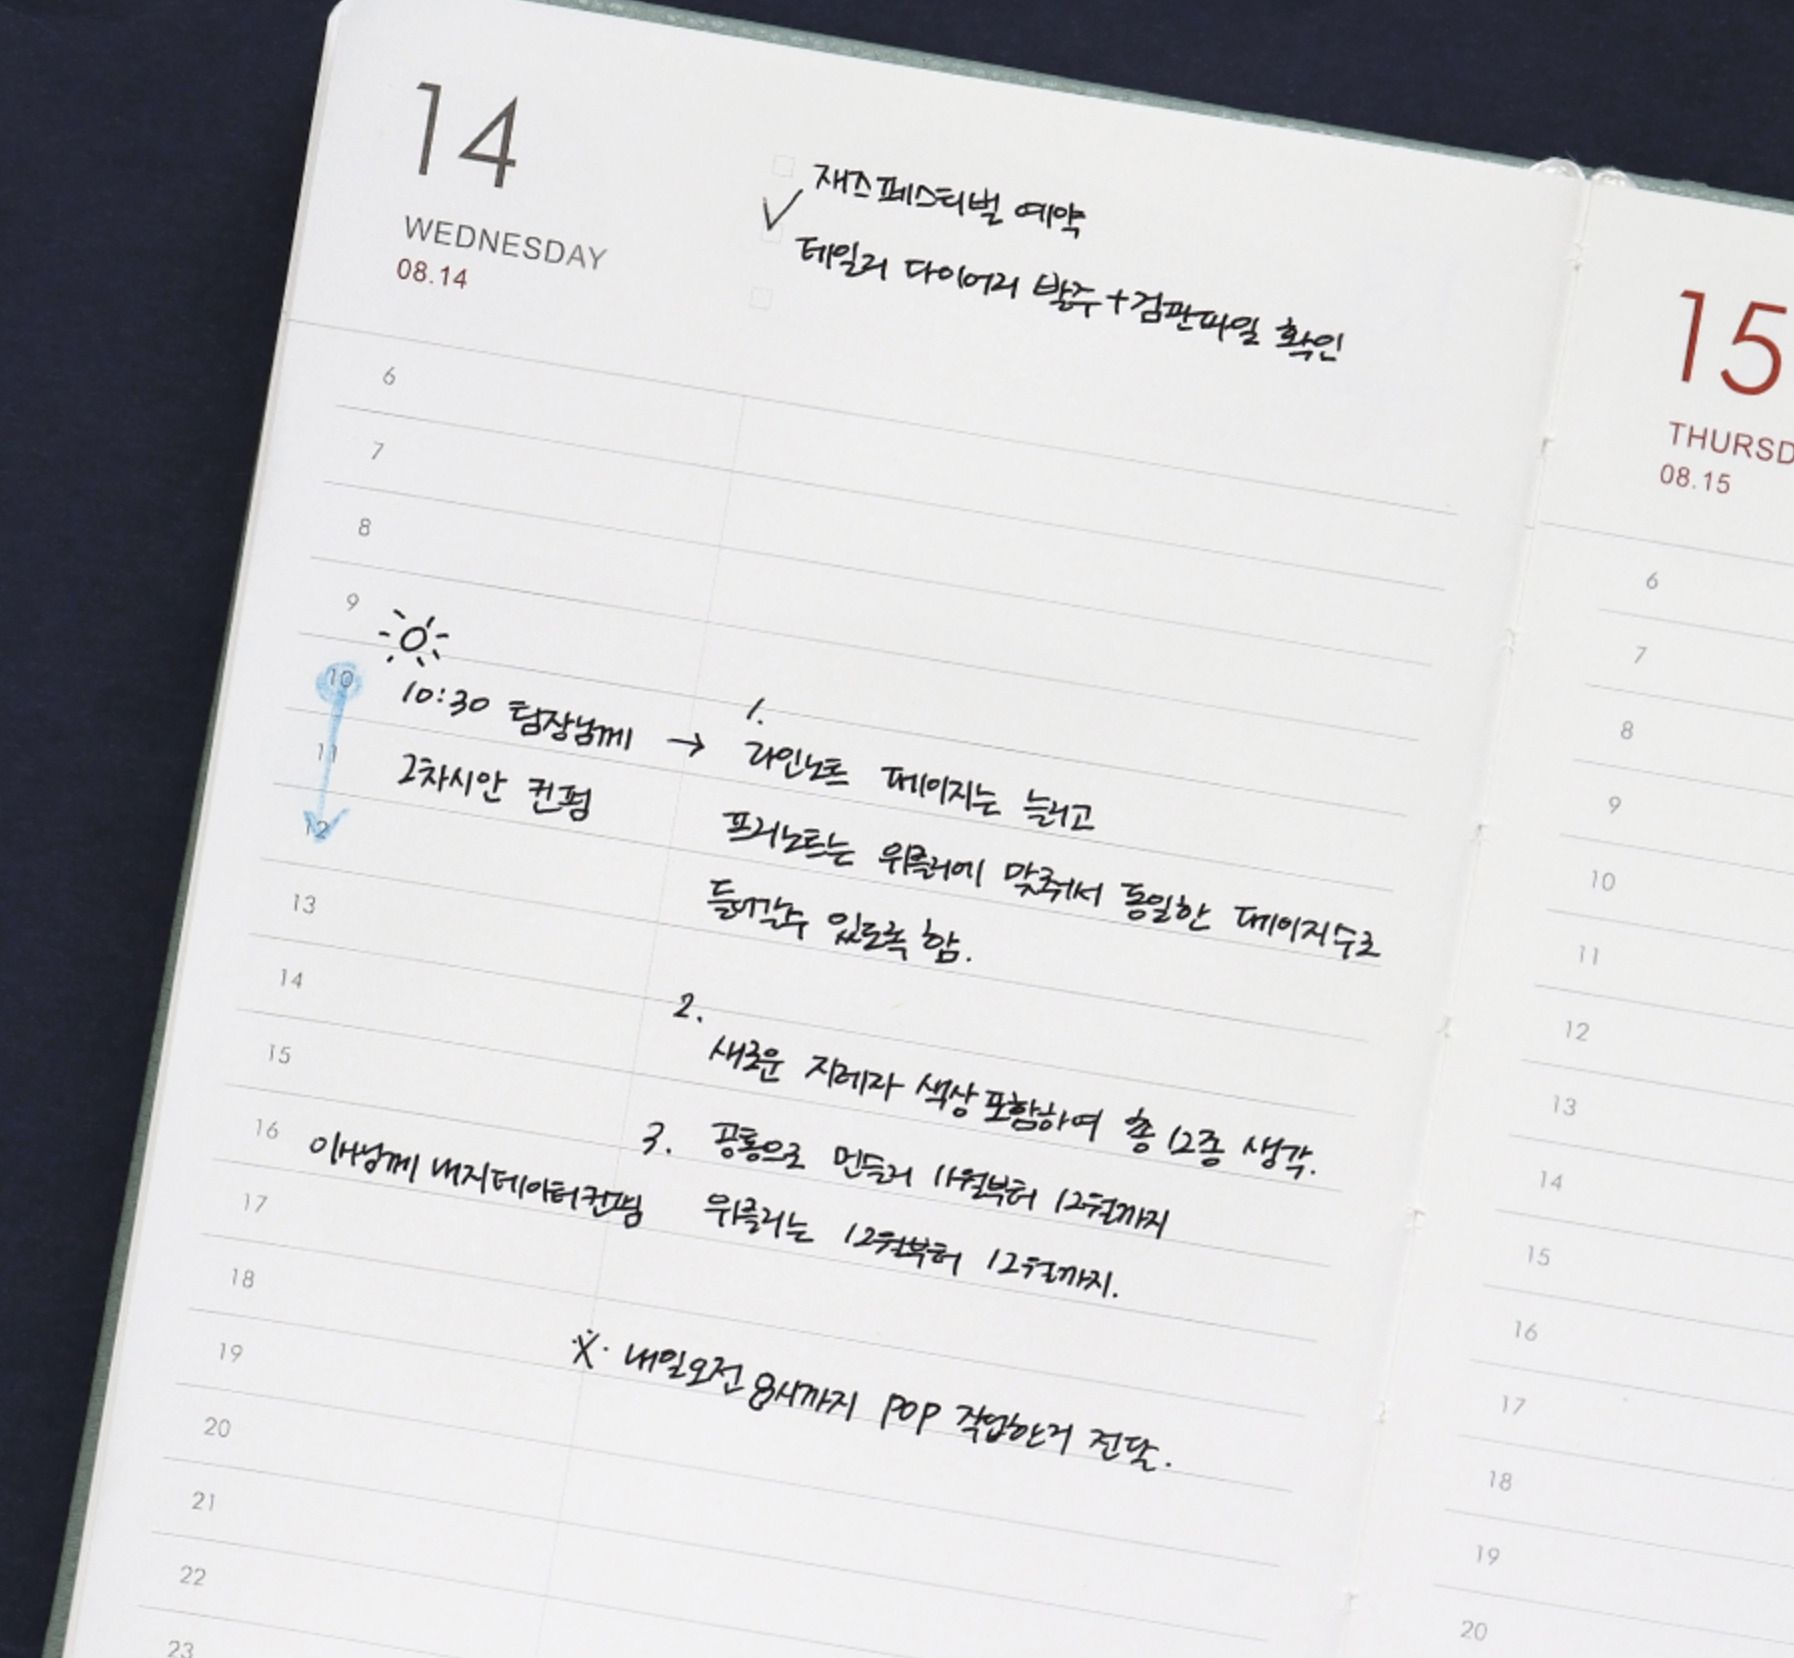 14
WEDNESDAY
08.14
재즈페스티벌 예약
테일러 다이어리 발주+검판파일 확인
6
7
8
9
10
10:30 팀장님께 →
11
2차시안 컨펌
12
1.
라인노트 페이지는 늘리고
프리노트는 위클리에 맞춰서 동일한 페이지수로
들어갈수 있도록 함.
13
14
2.
새로운 지레자 색상 포함하여 총 12종 생각.
15
3. 공통으로 먼슬리 11월부터 12월까지
위클리는 12월부터 12월까지.
16
이사님께 내지데이터컨펌
17
18
※. 내일오전 8시까지 POP 작업한거 전달.
19
20
21
22
23
15
THURSD
08.15
6
7
8
9
10
11
12
13
14
15
16
17
18
19
20